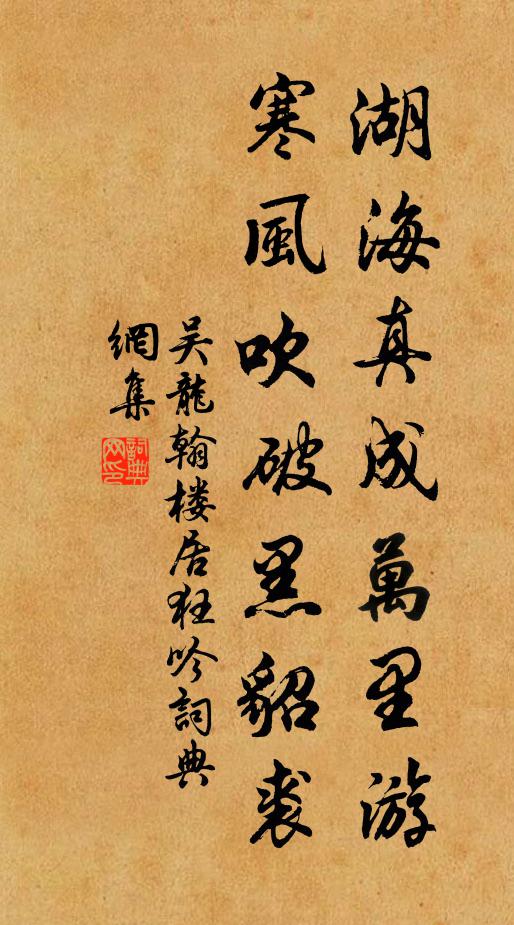 湖海真成萬里游
寒風吹破黑貂裘
吴龍翰楼居狂吟詞典
網集
詞典網印